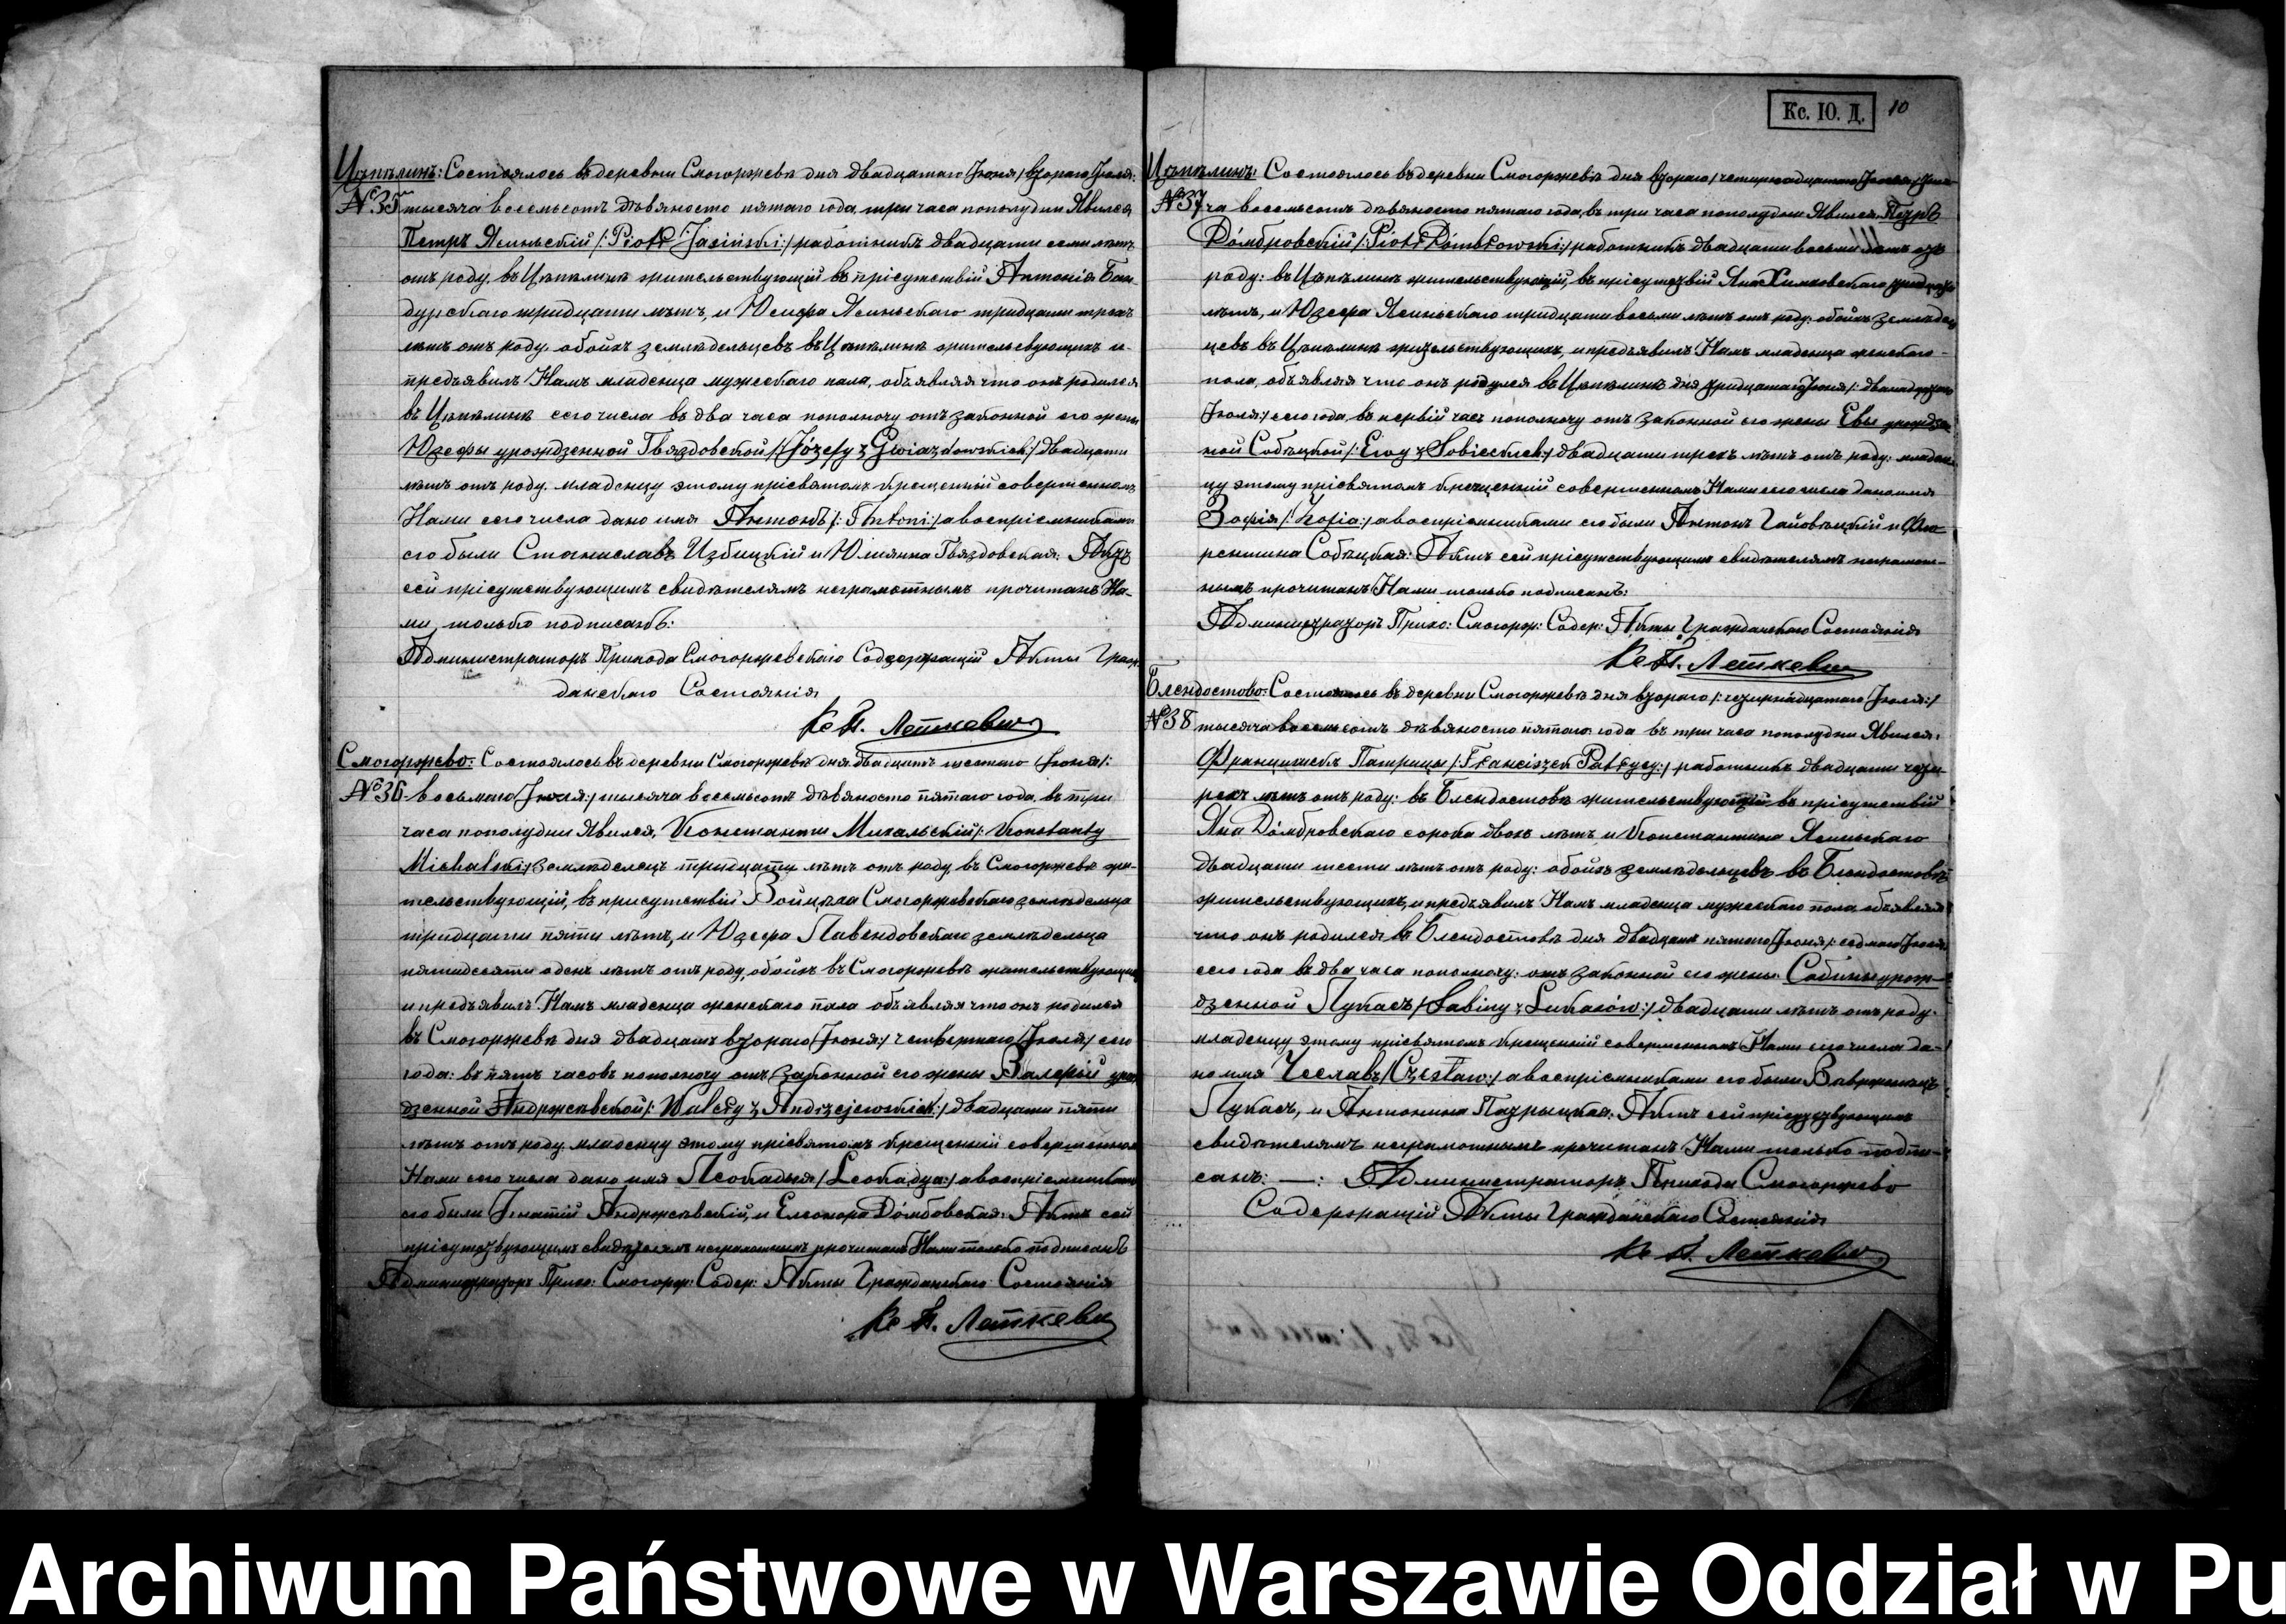 Кс. Ю. Д. 10
Цѣпѣлинъ: Состоялось въ деревни Смогоржевѣ дня двадцатаго Іюня /: втораго Іюля:
№35 тысяча восемьсотъ дѣвяносто пятаго года, три часа пополудни Явился
Петръ Ясиньскій /: Piotr Jasiński :/ работникъ двадцати семи лѣтъ
отъ роду, въ Цѣпѣлинѣ жительствующій въ прісутствій Антонія Бан-
дурскаго тридцати лѣтъ, и Юзефа Ясиньскаго тридцати трехъ
лѣтъ отъ роду, обойхъ земледѣльцевъ въ Цѣпѣлинѣ жительсвующихъ и
предъявилъ Намъ младенца мужескаго пола, объявляя что онъ родился
въ Цѣпѣлинѣ сего числа въ два часа пополночу отъ законной его жены
Юзефы урождзенной Гвяздовской /: Józefy z Gwiazdowskich :/ двадцати
лѣтъ отъ роду, младенцу этому прісвятомъ крещенній совершенномъ
Нами сего числа дано имя Антонъ /: Antoni :/ а воспріемниками
его были Станиславъ Избицкій и Юліянна Гвяздовская. Актъ
сей прісутствующимъ свидѣтелямъ неграмотнымъ прочитанъ На-
ми только подписанъ:
Администраторъ Прихода Смогоржевскаго Содержащій Акты Граж-
данскаго Состоянія
Кс А. Леткевич
Смогоржево: Состоялось въ деревни Смогоржевѣ дня двадцать шестаго Іюня /:
№36 восьмаго Іюля :/ тысяча восемьсотъ дѣвяносто пятаго года, въ три
часа пополудни Явился, Константы Михальскій /: Konstanty
Michalski :/ земледѣлецъ тридцати лѣтъ отъ роду, въ Смогоржевѣ жи-
тельствующій, въ присутствій Войцѣха Смогоржевскаго земледѣльца
тридцати пяти лѣтъ, и Юзефа Лавендовскаго земледѣльца
пятидесяти оденъ лѣтъ отъ роду, обойхъ въ Смогоржевѣ жительствующихъ
и предъявилъ Намъ младенца женскаго пола объявляя что онъ родился
въ Смогоржевѣ дня двадцать втораго Іюня :/ четвертаго Іюля :/ сего
года: въ пять часовъ пополночу отъ законной его жены Валерій уро-
дзенной Андржеевской /: Walery z Andrzejewskich :/ двадцати пяти
лѣтъ отъ роду, младенцу этому прісвятомъ крещенній совершенномъ
Нами сего числа дано имя Леокадыя /: Leokadya :/ а воспріемниками
его были Игнатій Андржеевскій, и Елеонора Домбовская. Актъ сей
прісутствующимъ свидѣтелямъ неграмотнымъ прочитанъ Нами только подписанъ
Администраторъ Прихо: Смогорж: Содер: Акты Гражданскаго Состоянія
Кс А. Леткевич
Цѣпѣлинъ: Состоялось въ деревни Смогоржевѣ дня втораго /: четырнадцатаго Іюля :/
№37 ча восемьсотъ дѣвяносто пятаго года, въ три часа пополудни Явился, Петръ
Домбровскій /: Piotr Dombrowski :/ работникъ двадцати восьми лѣтъ отъ
роду: въ Цѣпѣлинѣ жительствующій, въ прісутствій Яна Химковскаго
лѣтъ, и Юзефа Ясиньскаго тридцати восьми лѣтъ отъ роду: обойхъ земледѣль
цевъ въ Цѣпѣлинѣ жительствующихъ, и предъявилъ Намъ младенца женскаго-
пола, объявляя что онъ родился въ Цѣпѣлинѣ дня тридцатаго Іюня /: двенадцатаго
Іюля :/ сего года, въ первій часъ пополночу отъ законной его жены Евы урождзе
ной Собѣцкой /: Ewy z Sobieckich :/ двадцати трехъ лѣтъ отъ роду: младен-
цу этому прісвятомъ крещенній совершенномъ Нами сего числа дано имя
Зофія /: Zofia :/ а воспріемниками его были Антонъ Гайовѣцкій и Фло-
рентина Собѣцкая: Актъ сей прісутствующимъ свидѣтелямъ неграмот-
нымъ прочитанъ Нами только подписанъ:
Администраторъ Прихо: Смогорж: Содер: Акты Гражданскаго Состоянія
Кс А. Леткевич
Блендостово: Состоялось въ деревни Смогоржевѣ дня втораго /: четырнадцатаго Іюля :/
№38 тысяча восемьсотъ дѣвяносто пятаго года въ три часа пополудни Явился,
Францишекъ Патрицы /: Franciszek Patrycy :/ работникъ двадцати четы-
рехъ лѣтъ отъ роду: въ Блендостовѣ жительствующій въ прісутствій
Яна Домбровскаго сорока двохъ лѣтъ и Константина Ясиньскаго
двадцати шести лѣтъ отъ роду: обойхъ земледѣльцевъ въ Блендостовѣ
жительствующихъ, и предъявилъ Намъ младенца мужескаго пола, объявляя
что онъ родился въ Блендостовѣ дня двадцать пятаго Іюня /: седмаго Іюля
сего года въ два часа пополночу: отъ законной его жены Сабины урож-
дзенной Лукасъ /: Sabiny z Lukasów :/ двадцати лѣтъ отъ роду.
младенцу этому прісвятомъ крещенній совершенномъ Нами сего числа да-
но имя Чеславъ /: Czesław :/ а воспріемниками его были Вавржинецъ
Лукасъ, и Антонина Патрыцкая. Актъ сей прісутствующимъ
свидѣтелямъ неграмотнымъ прочитанъ Нами только подпи-
санъ: —: Администраторъ Прихода Смогоржево
Содержащій Акты Гражданскаго Состоянія
Кс А. Леткевич
Archiwum Państwowe w Warszawie Oddział w Pu